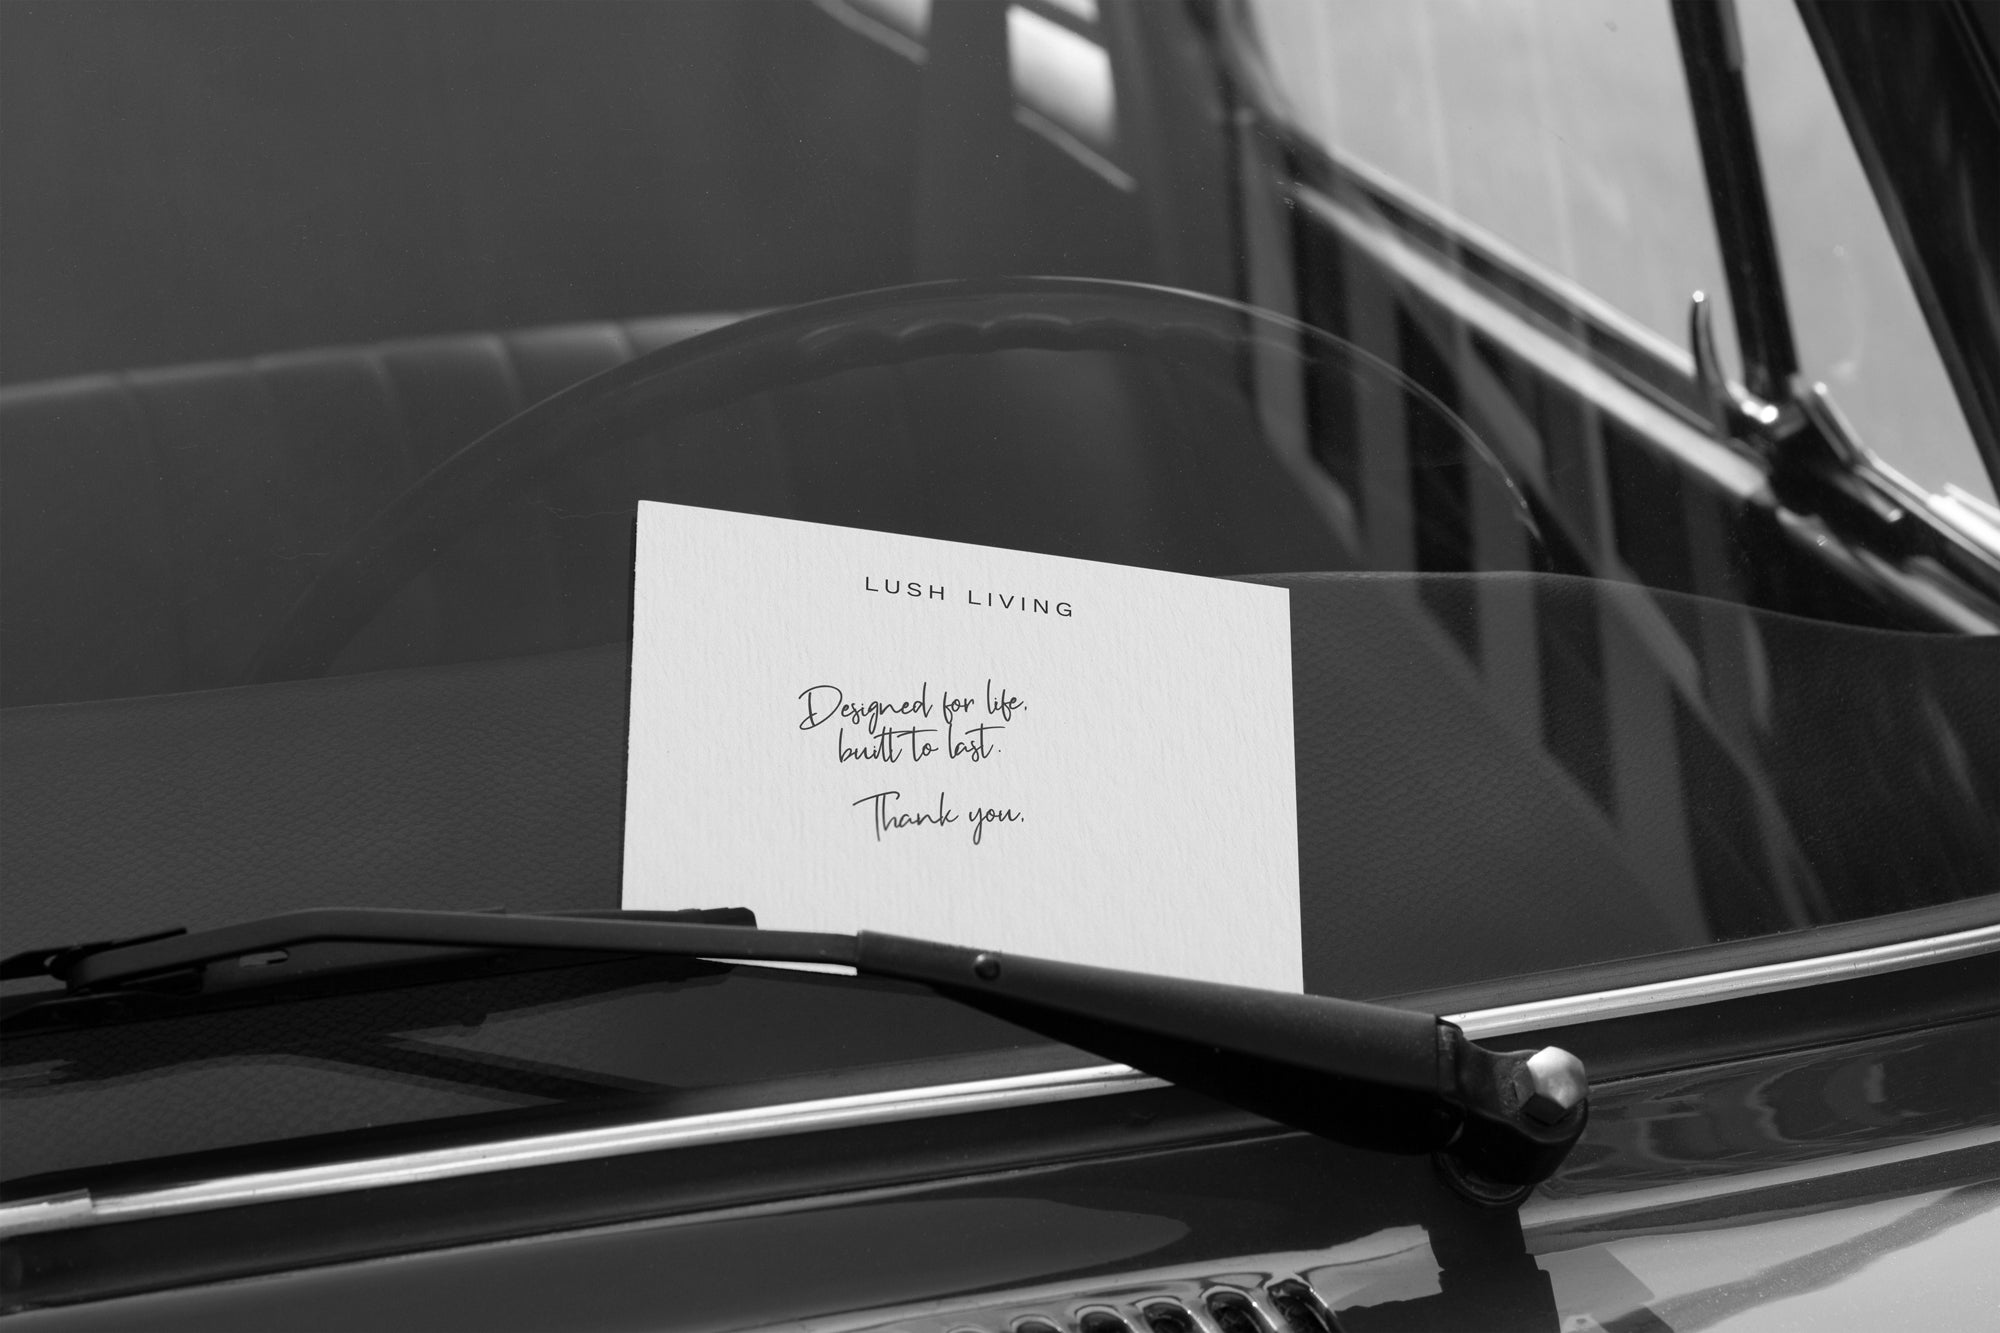 LUSH LIVING
Designed for life,
built to last.
Thank you,